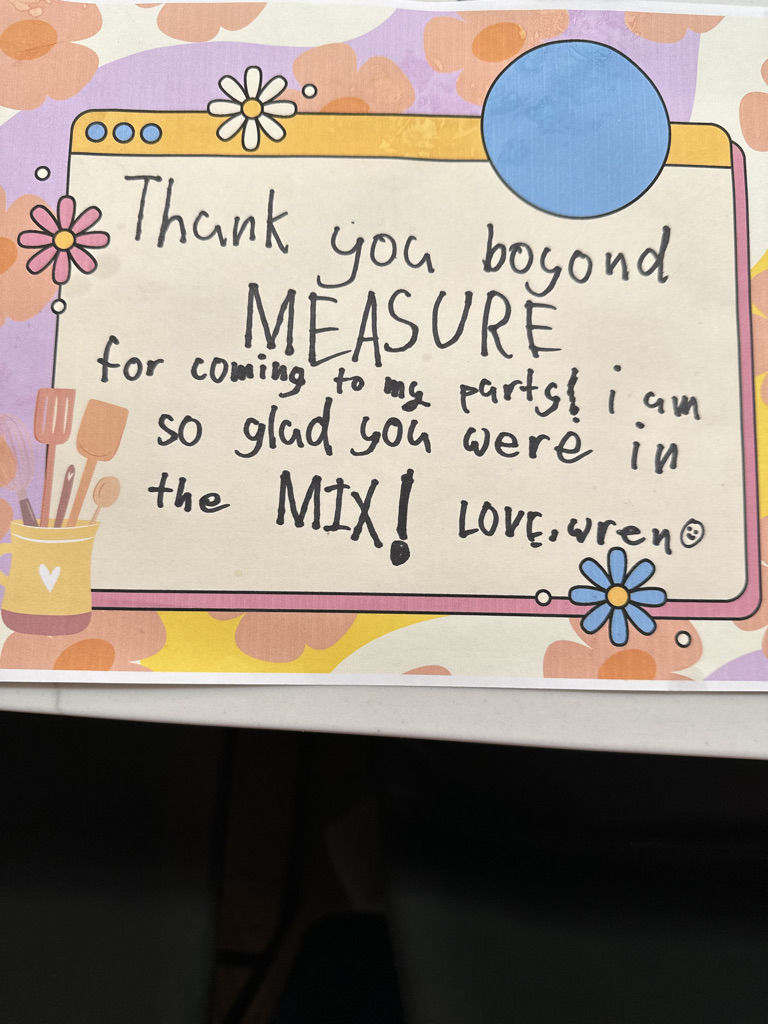 Thank you boyond
MEASURE
for coming to my party! i am
so glad you were in
the MIX! LOVE, wren